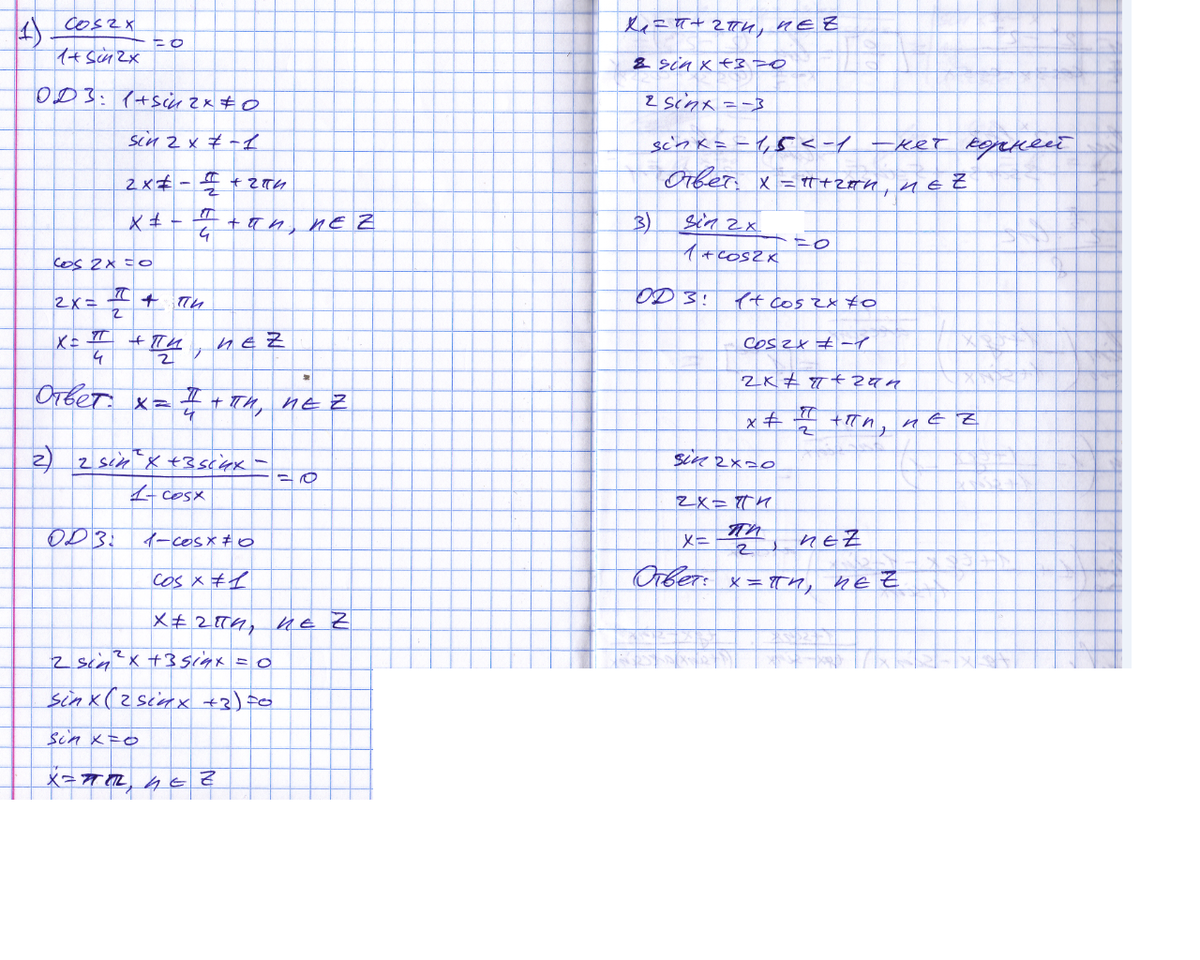 1) cos2x / 1+sin2x = 0
ОДЗ: 1+sin2x ≠ 0
sin2x ≠ -1
2x ≠ - π/2 + 2πn
x ≠ - π/4 + πn, n ∈ Z
cos2x = 0
2x = π/2 + πn
x = π/4 + πn/2, n ∈ Z
Ответ: x = π/4 + πn, n ∈ Z
2) 2sin²x + 3sinx - / 1-cosx = 0
ОДЗ: 1-cosx ≠ 0
cosx ≠ 1
x ≠ 2πn, n ∈ Z
2sin²x + 3sinx = 0
sinx(2sinx + 3) = 0
sinx = 0
x = πn, n ∈ Z
x₁ = π + 2πn, n ∈ Z
2sinx + 3 = 0
2sinx = -3
sinx = -1,5 < -1 — нет корней
Ответ: x = π + 2πn, n ∈ Z
3) sin2x / 1+cos2x = 0
ОДЗ: 1+cos2x ≠ 0
cos2x ≠ -1
2x ≠ π + 2πn
x ≠ π/2 + πn, n ∈ Z
sin2x = 0
2x = πn
x = πn/2, n ∈ Z
Ответ: x = πn, n ∈ Z